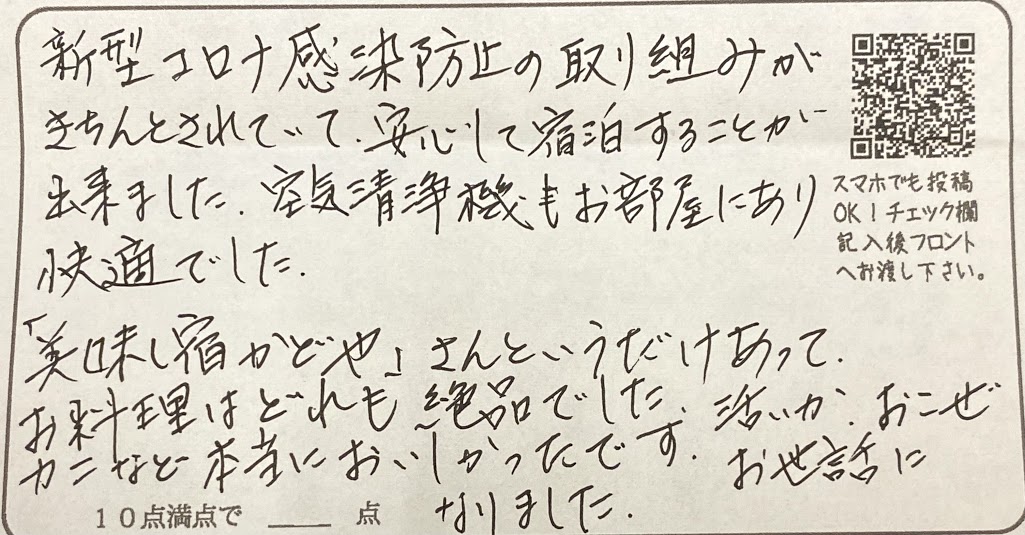 新型コロナ感染防止の取り組みが
きちんとされていて、安心して宿泊することが
出来ました。空気清浄機もお部屋にあり
快適でした。
「美味し宿かどや」さんというだけあって、
お料理はどれも絶品でした。活いか、おこぜ
カニなど本当においしかったです。お世話に
なりました。
スマホでも投稿
OK!チェック欄
記入後フロント
へお渡し下さい。
10点満点で ____ 点